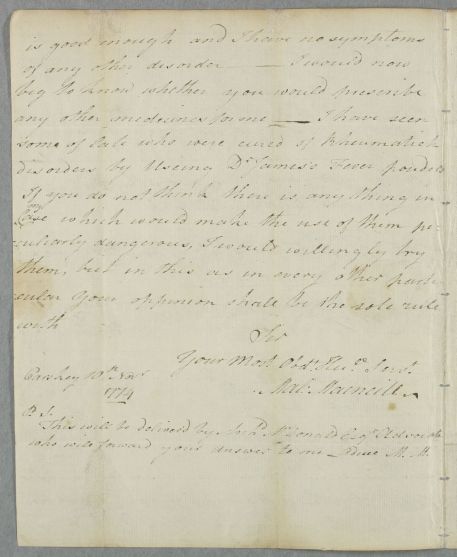 is good enough and I have no symptoms
of any other disorder — I would now
beg to know whether you would prescribe
any other medecines for me — I have seen
some of late who were cured of Rheumatick
disorders by Useing Dr James's Fever powders
If you do not think there is any thing in
my Case which would make the use of them pe-
culiarly dangerous, I would willingly try
them, but in this as in every other parti-
cular your oppinion shall be the sole rule
with
Sir
Your Most Obdt. Hule. Servt.
Mal: Macneill
10th Novr
1774
P.S.
This will be delivered by Archd. McDonald Esqr. Advocate
who will forward your answer to me Adieu M. M.